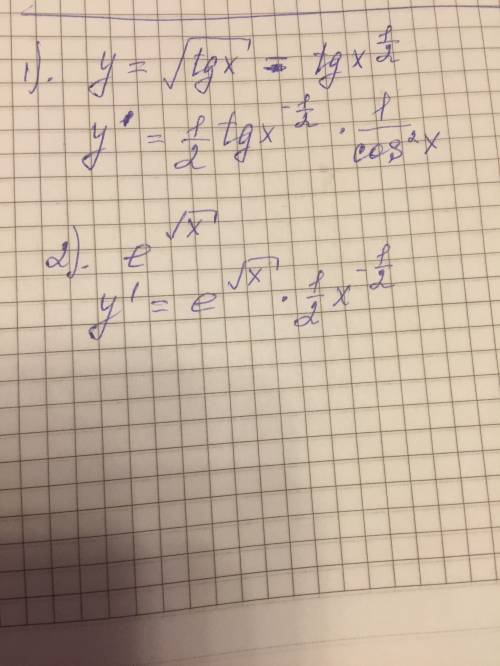 1). y = √tgx = tgx^{1/2}
y' = 1/2 tgx^{-1/2} · 1/cos²x
2). e^{√x}
y' = e^{√x} · 1/2 x^{-1/2}